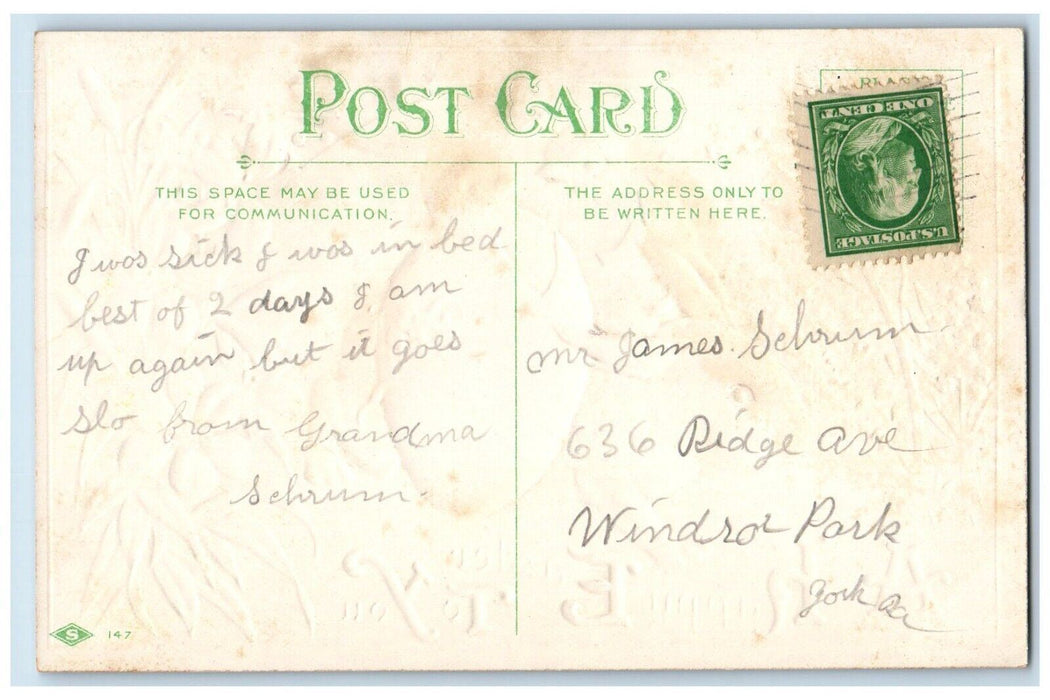 POST CARD
THIS SPACE MAY BE USED
FOR COMMUNICATION.
I was sick I was in bed
best of 2 days I am
up again but it goes
slo from Grandma
Schrum.
THE ADDRESS ONLY TO
BE WRITTEN HERE.
ONE CENT
U.S. POSTAGE
Mr James. Schrum
636 Ridge Ave
Windsor Park
York Pa
A Happy Easter
To You
S 147